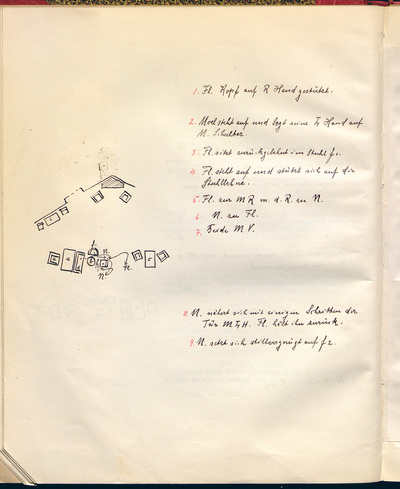 1. Fl. Kopf auf R Hand gestützt.
2. Mort steht auf und legt seine Hand auf
N. Schulter.
3. Fl. sitzt zurückgelehnt im Stuhl f2.
4. Fl. steht auf und stützt sich auf die
Stuhllehne.
5. Fl. zur M R m. d. R. zu N.
6. N. zu Fl.
7. Beide M. V.
8. N. nähert sich mit einigen Schritten der
Tür M H. Fl. hält ihn zurück.
9. N. setzt sich stillvergnügt auf f2.